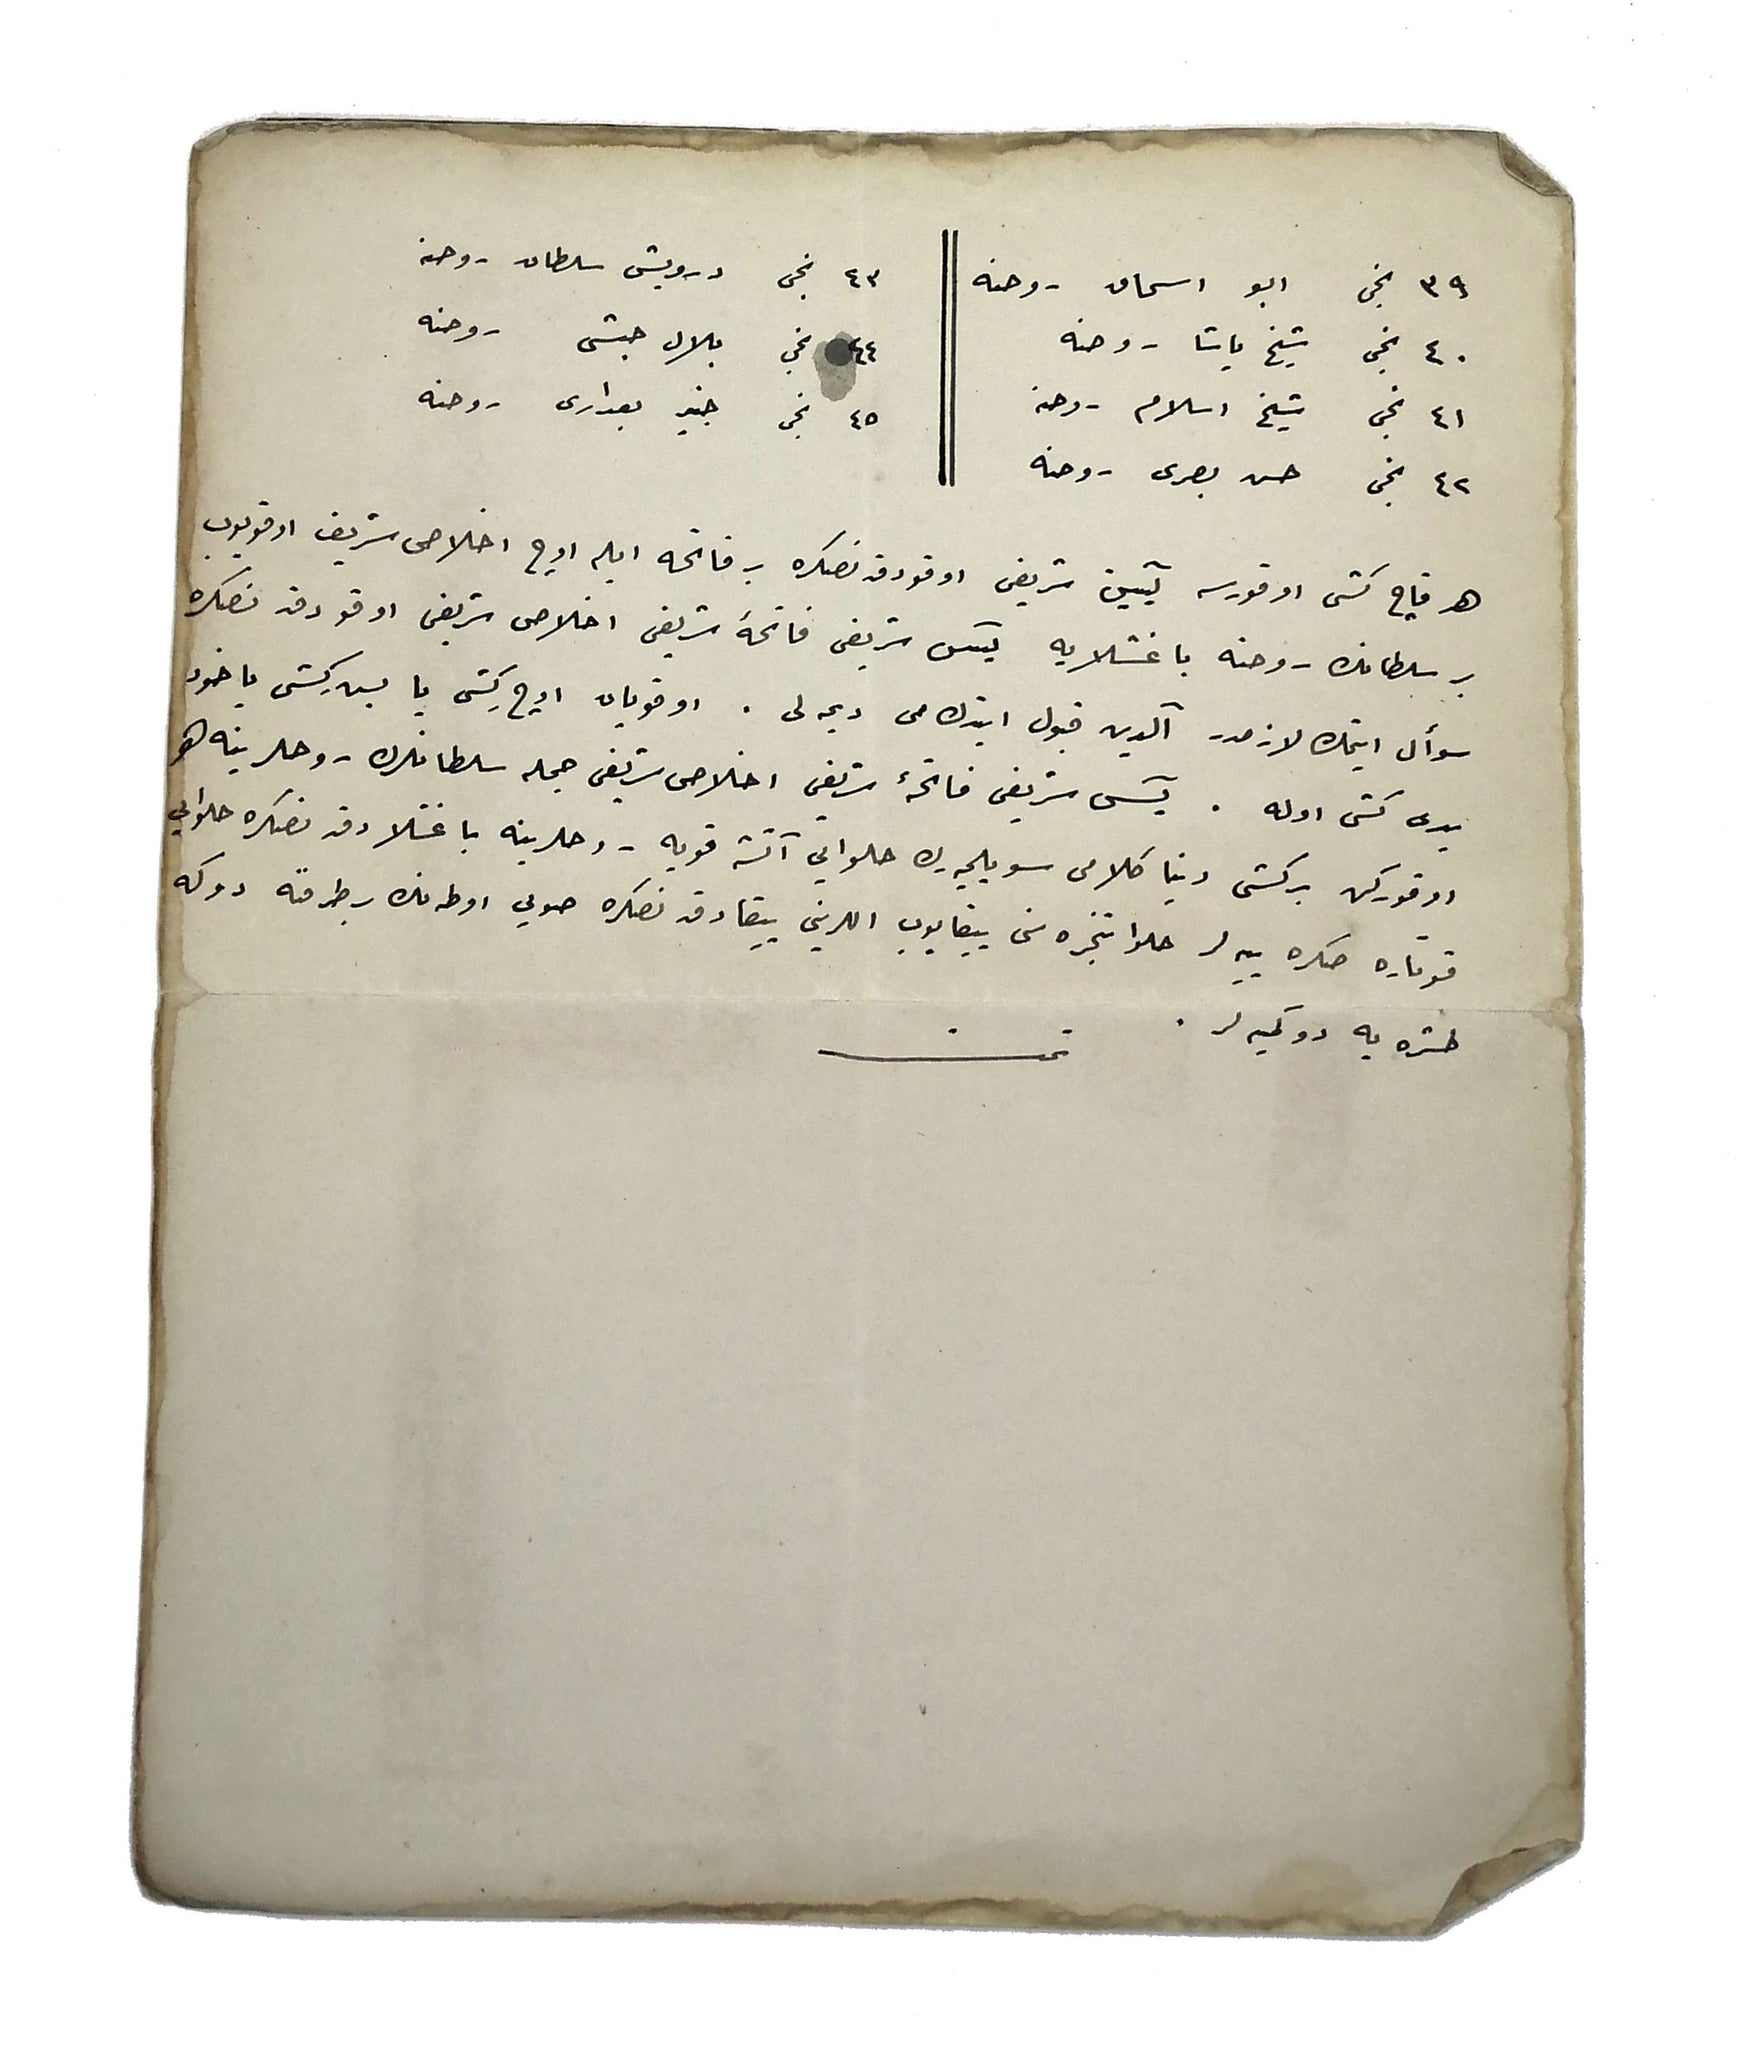 ٣٩ نجی ابو اسحاق روحنه
٤٠ نجی شیخ پاشا روحنه
٤١ نجی شیخ اسلام روحنه
٤٢ نجی حسن بصری روحنه
٤٣ نجی درویش سلطان روحنه
٤٤ نجی بلال حبشی روحنه
٤٥ نجی جنید بغدادی روحنه
هر قاچ کشی اوقورسه یٰسین شریفی اوقودقدنصکره بر فاتحه ایله اوچ اخلاص شریف اوقویوب
بر سلطانك روحنه باغشلایه یٰسین شریفی فاتحۀ شریفی اخلاص شریفی اوقودقدنصکره
سوأل ایتمك لازمدر آلدین قبول ایتدك می دیمه لی . اوقویان اوچ کشی یا بش کشی یاخود
یدی کشی اوله . یٰسین شریفی فاتحۀ شریفی اخلاص شریفی جمله سلطانلرك روحلرینه هم
اوقورکن بر کشی دنیا کلامی سویلمیه رك حلوایی آتشه قویه روحلرینه باغشلادقدنصکره حلوایی
قوتاره صکره ییه لر حلوا تنجره سنی ییقایوب اللرینی ییقادقدنصکره صویی اوطه نك بر طرفنه دوکه
طشره یه دوکمیه لر .
تمت